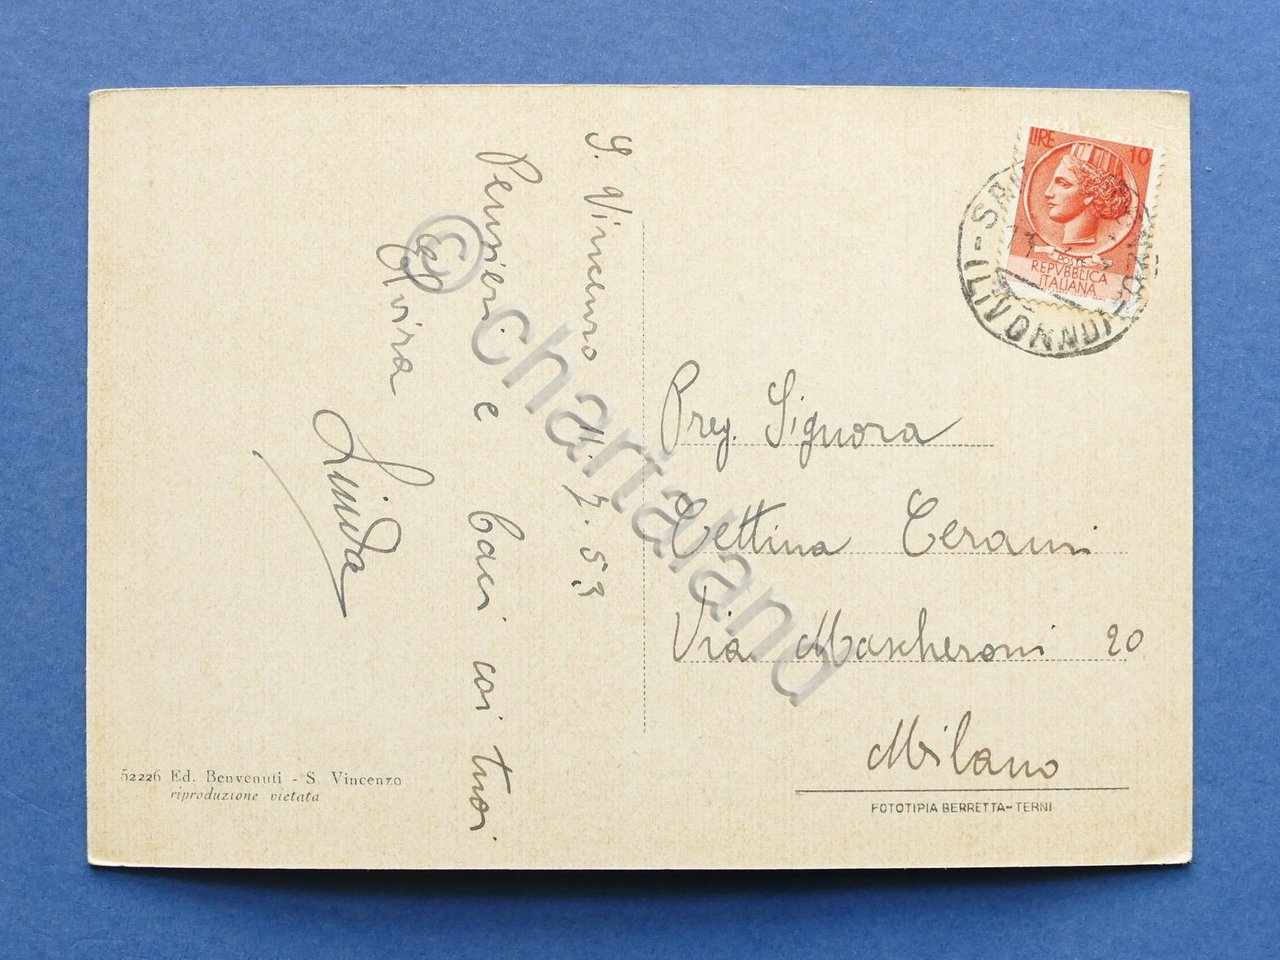 S. Vincenzo 11.7.53
Pensieri e baci coi tuoi
ed Elvira
Linda
LIRE 10
POSTE
REPVBBLICA
ITALIANA
Preg. Signora
Tettina Cerani
Via Mascheroni 20
Milano
52226 Ed. Benvenuti - S. Vincenzo
riproduzione vietata
FOTOTIPIA BERRETTA-TERNI
© chartaland